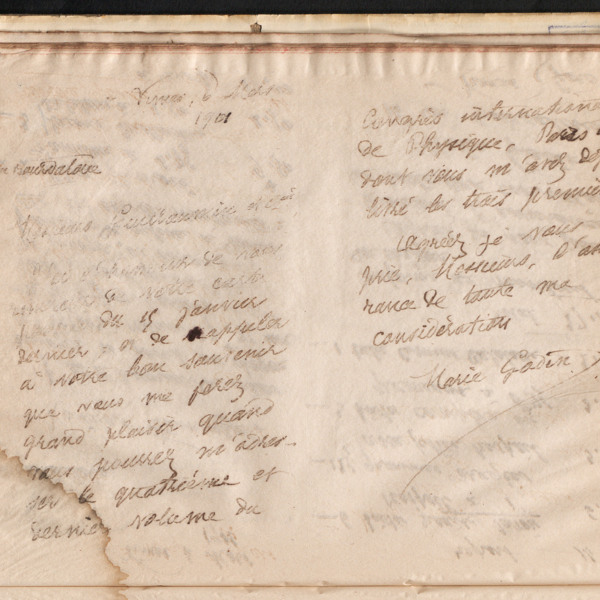 Mars
1901
Bourdaloue
Messieurs Guillaumin et Cie
de vous
votre carte
du 15 janvier
dernier et de rappeler
à votre bon souvenir
que vous me ferez
grand plaisir quand
vous pourrez m'adres-
ser le quatrième et
dernier volume du
Congrès international
de Physique, Paris
dont vous m'avez déj
livré les trois premier
Agréez je vous
prie, Messieurs, l'as
rance de toute ma
considération
Marie Godin